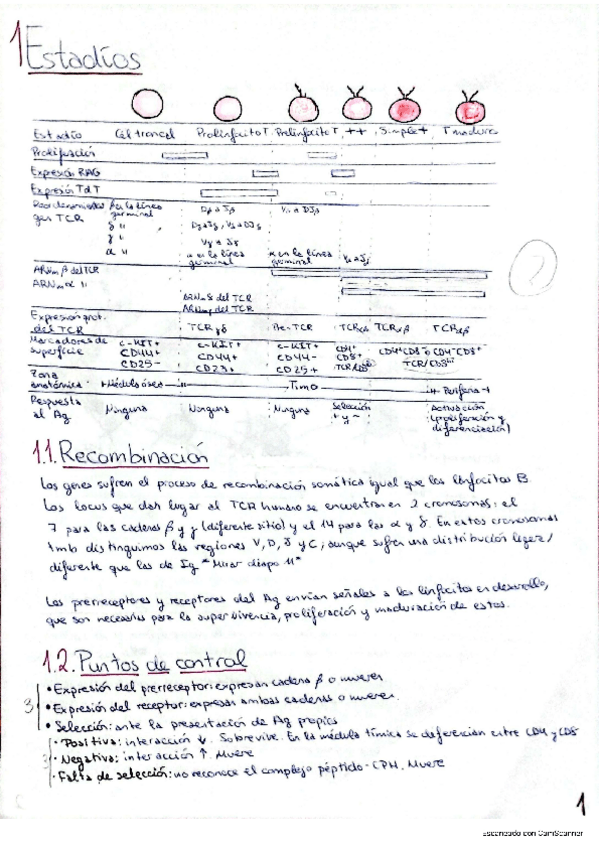 1 Estadíos
Estadío Cél troncal Prolinfocito T Prelinfocito T ++ Simple + T madura
Proliferación
Expresión RAG
Expresión TdT
Reordenamientos β en la línea germinal Dβ a Jβ Vβ a DJβ
gen TCR
δ "
γ " Vγ a Jγ
α " α en la línea germinal α en la línea germinal Vα a Jα
ARNm β del TCR
ARNm α "
ARNm δ del TCR
ARNm γ del TCR
Expresión prot. del TCR TCR γδ Pre-TCR TCRαβ TCRαβ TCRαβ
Marcadores de superficie c-KIT+ c-KIT+ c-KIT+ CD4+
CD44+ CD44+ CD44- CD8+
CD25- CD25+ CD25+
Zona anatómica Médula ósea Timo Periferia
Respuesta al Ag Ninguna Ninguna Ninguna Selección + y - Activación (proliferación y diferenciación)
2
1.1. Recombinación
Los genes sufren el proceso de recombinación somática igual que los linfocitos B.
Los locus que dan lugar al TCR humano se encuentran en 2 cromosomas: el
7 para las cadenas β y γ (diferente sitio) y el 14 para las α y δ. En estos cromosomas
tmb distinguimos las regiones V, D, J y C, aunque sufren una distribución liger/
diferente que las de Ig *Mirar diapo 11*
Los prerreceptores y receptores del Ag envían señales a los linfocitos en desarrollo,
que son necesarias para la supervivencia, proliferación y maduración de estos.
1.2. Puntos de control
3 • Expresión del prerreceptor: expresan cadena β o mueren
• Expresión del receptor: expresas ambas cadenas o mueres.
• Selección: ante la presentación de Ag propios
· Positiva: interacción ↓. Sobrevive. En la médula tímica se diferencian entre CD4 y CD8
· Negativa: interacción ↑. Muere
· Falta de selección: no reconoce el complejo péptido-CPH. Muere
1
Escaneado con CamScanner